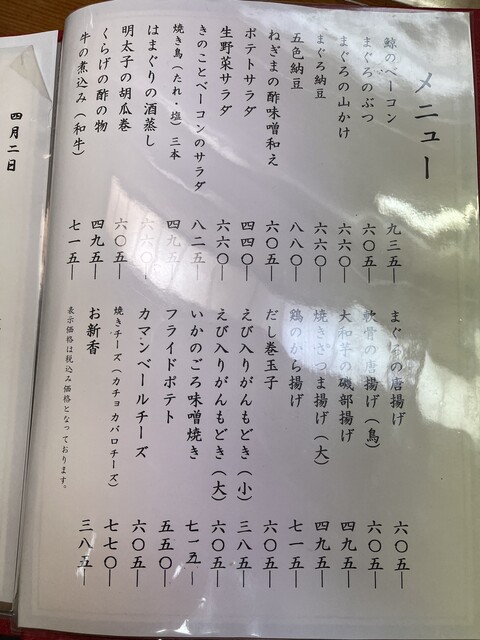 メニュー
鯨のベーコン 九三五―
まぐろのぶつ 六〇五―
まぐろの山かけ 六六〇―
まぐろ納豆 六六〇―
五色納豆 八八〇―
ねぎまの酢味噌和え 六〇五―
ポテトサラダ 四四〇―
生野菜サラダ 六六〇―
きのことベーコンのサラダ 八二五―
焼き鳥（たれ・塩）三本 四九五―
はまぐりの酒蒸し 六六〇―
明太子の胡瓜巻 六〇五―
くらげの酢の物 四九五―
牛の煮込み（和牛） 七一五―
まぐろの唐揚げ 六〇五―
軟骨の唐揚げ（鳥） 六〇五―
大和芋の磯部揚げ 四九五―
焼きさつま揚げ（大） 四九五―
鶏のから揚げ 七一五―
だし巻玉子 六〇五―
えび入りがんもどき（小） 三八五―
えび入りがんもどき（大） 六〇五―
いかのごろ味噌焼き 七一五―
フライドポテト 五五〇―
カマンベールチーズ 六〇五―
焼きチーズ（カチョカバロチーズ） 七七〇―
お新香 三八五―
表示価格は税込み価格となっております。
四月二日